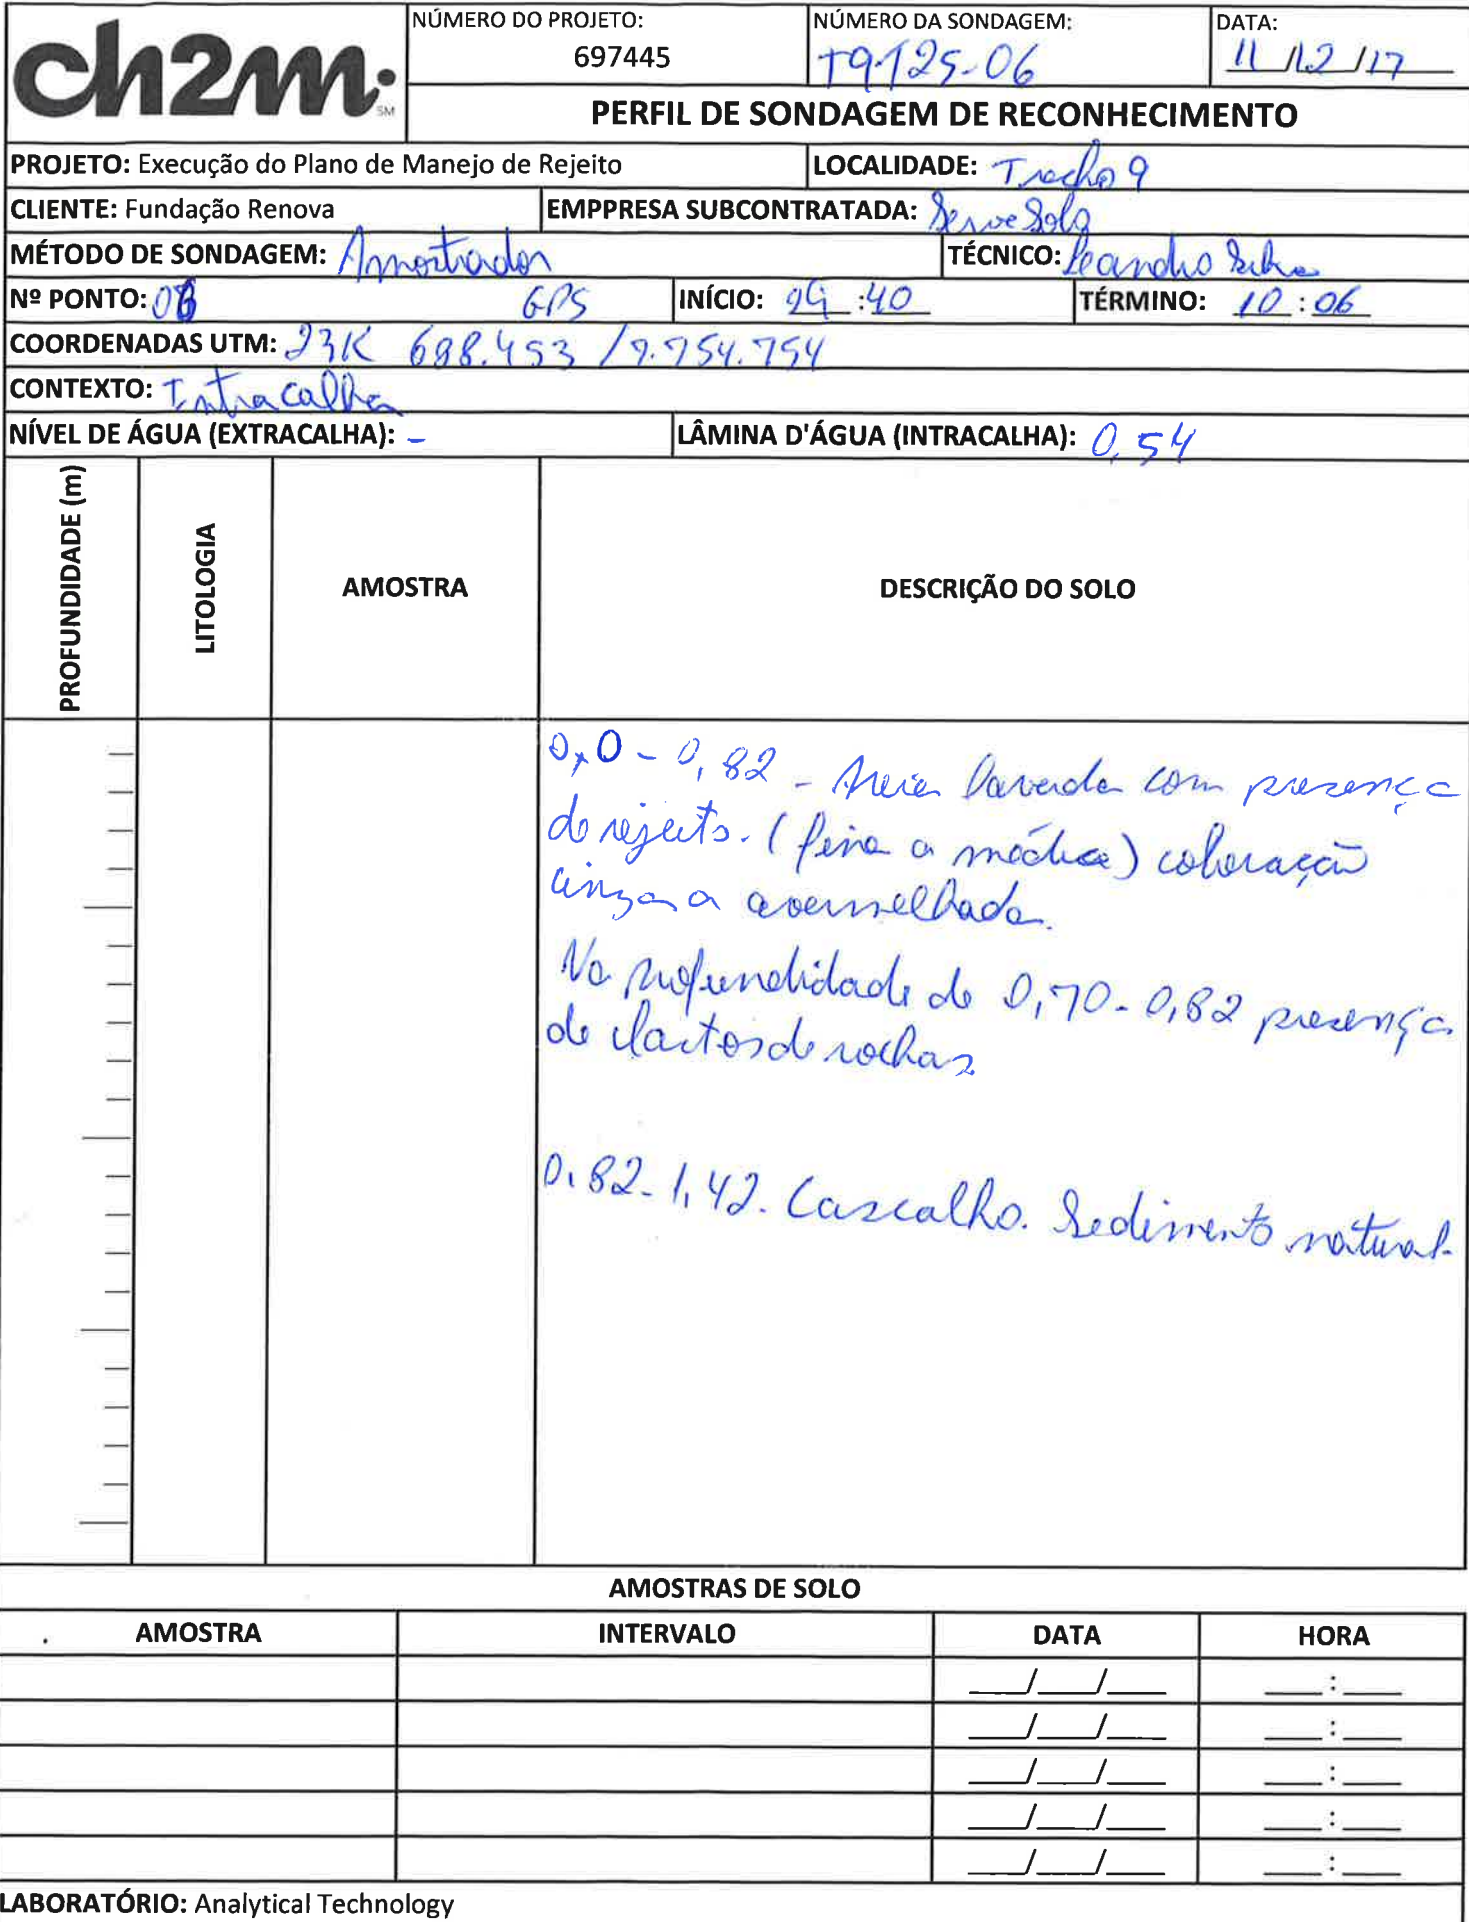 ch2m SM
NÚMERO DO PROJETO: 697445
NÚMERO DA SONDAGEM: T9T25-06
DATA: 11/12/17
PERFIL DE SONDAGEM DE RECONHECIMENTO
PROJETO: Execução do Plano de Manejo de Rejeito LOCALIDADE: Trecho 9
CLIENTE: Fundação Renova EMPPRESA SUBCONTRATADA: ServeSolo
MÉTODO DE SONDAGEM: Amostrador TÉCNICO: Leandro Silva
Nº PONTO: GPS INÍCIO: 09:40 TÉRMINO: 10:06
COORDENADAS UTM: 23K 688.453 / 7.754.754
CONTEXTO: Intracalha
NÍVEL DE ÁGUA (EXTRACALHA): - LÂMINA D'ÁGUA (INTRACALHA): 0,54
PROFUNDIDADE (m) LITOLOGIA AMOSTRA DESCRIÇÃO DO SOLO
0,0 - 0,82 - Areia lavada com presença
de rejeito. (fina a média) coloração
cinza a avermelhada.
Na profundidade de 0,70 - 0,82 presença
de clastos de rochas
0,82 - 1,42. Cascalho. Sedimento natural.
AMOSTRAS DE SOLO
AMOSTRA INTERVALO DATA HORA
___/___/___ ___:___
___/___/___ ___:___
___/___/___ ___:___
___/___/___ ___:___
___/___/___ ___:___
LABORATÓRIO: Analytical Technology